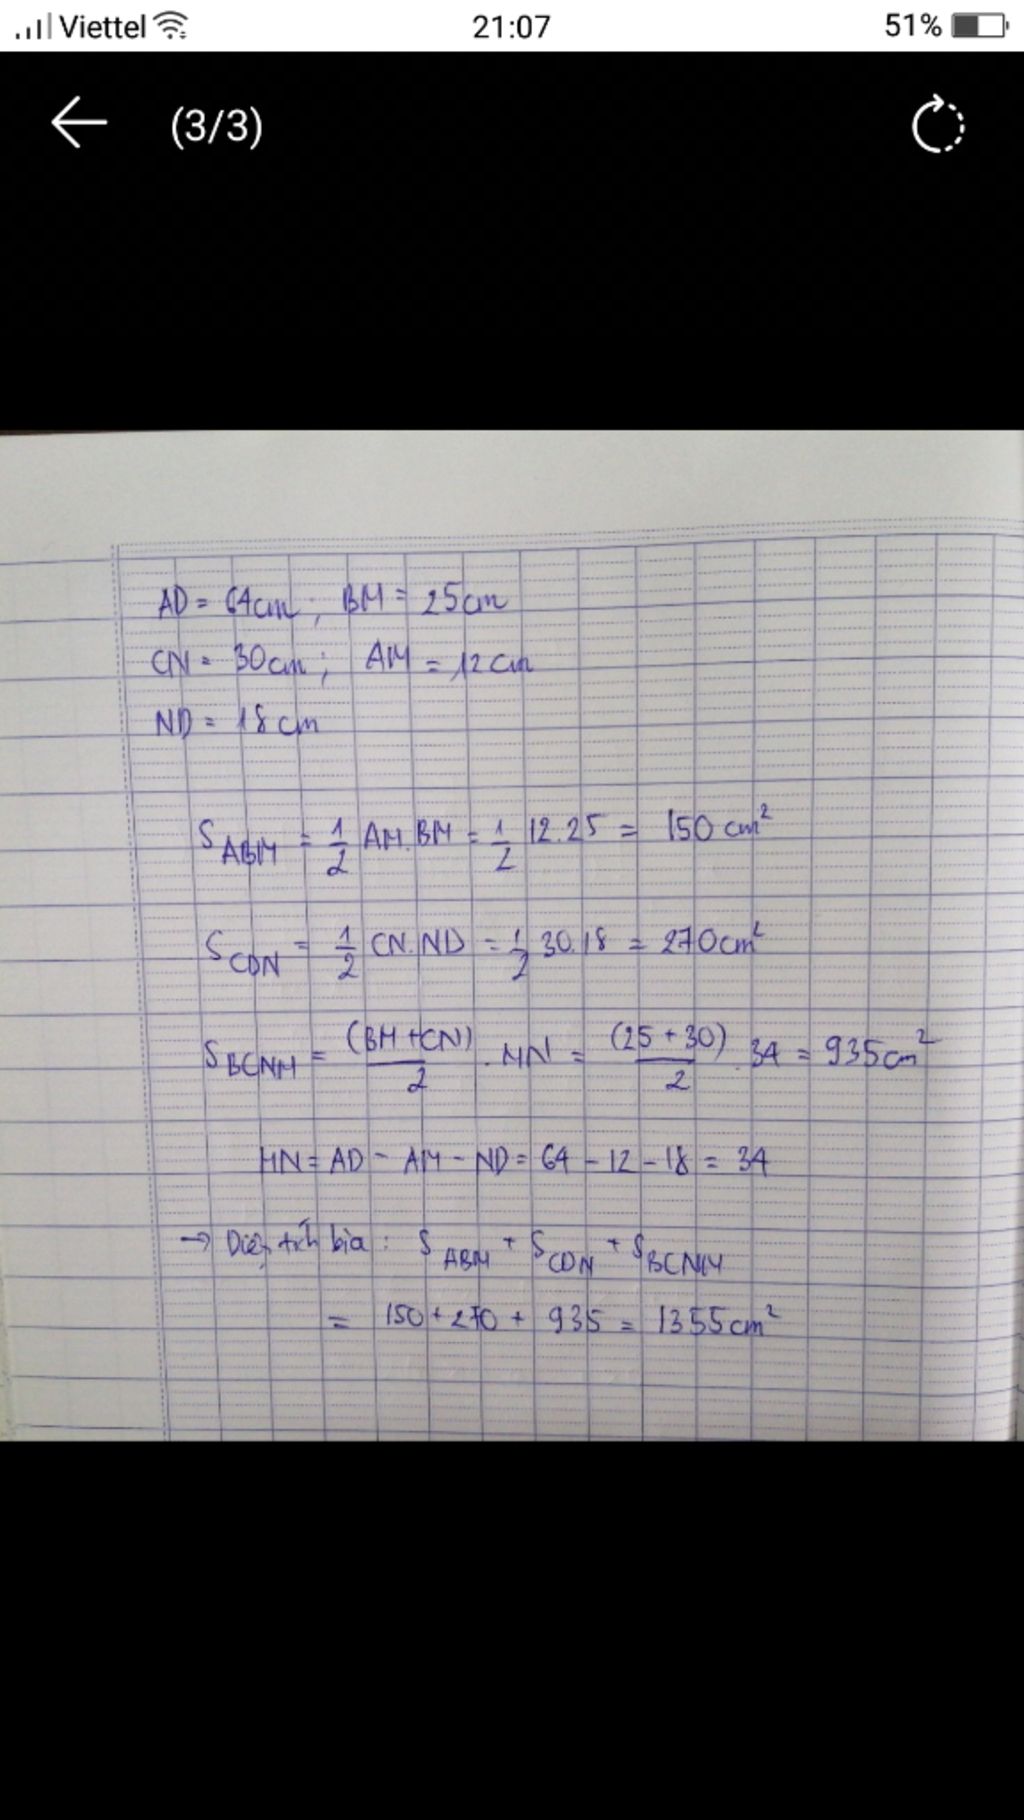 Viettel 21:07 51%
(3/3)
AD = 64cm ; BM = 25cm
CN = 30cm ; AM = 12cm
ND = 18cm
S ABM = 1/2 AM.BM = 1/2 12.25 = 150 cm²
S CDN = 1/2 CN.ND = 1/2 30.18 = 270cm²
S BCNM = (BM+CN)/2 . MN = (25+30)/2 . 34 = 935cm²
MN = AD - AM - ND = 64 - 12 - 18 = 34
→ Diện tích bìa : S ABM + S CDN + S BCNM
= 150 + 270 + 935 = 1355cm²